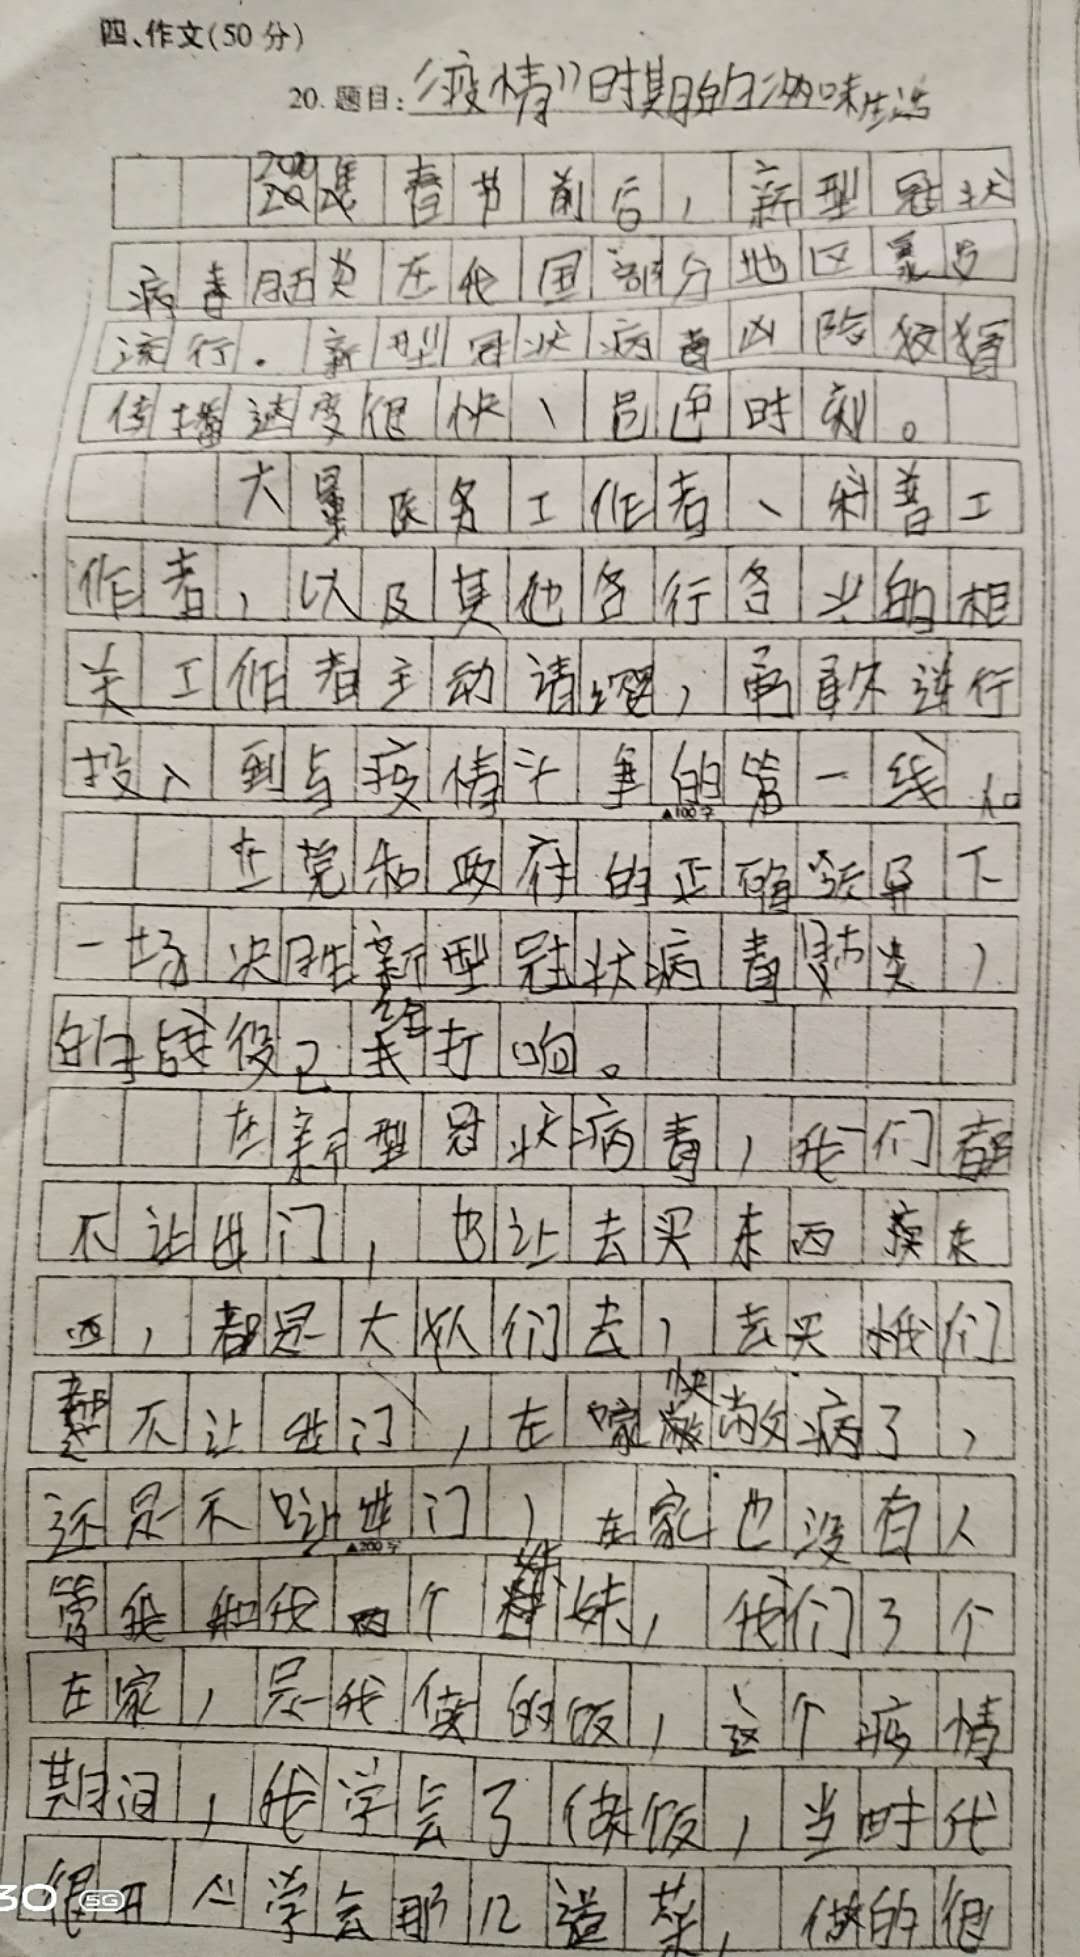 四、作文(50分)
20.题目:“疫情”时期的滋味生活
2020年春节前后,新型冠状
病毒肺炎在我国部分地区暴发
流行.新型冠状病毒凶险狡猾
传播速度很快、
时刻。
大量医务工作者、科普工
作者,以及其他各行各业的相
关工作者主动请缨,勇敢逆行
投入到与疫情斗争的第一线,
▲100字
在党和政府的正确领导下
一场决胜新型冠状病毒肺炎,
的战役已经打响。
在新型冠状病毒,我们都
不让出门,也让去买东西
西,都是大人们去,去买 我们
都不让出门,在家 病了,
还是不让出门,在家也没有人
▲200字
管我和我两个妹妹,我们了个
在家,是我做的饭,这个疫情
期间,我学会了做饭,当时我
很开心学会那几道菜,做的很
30 5G